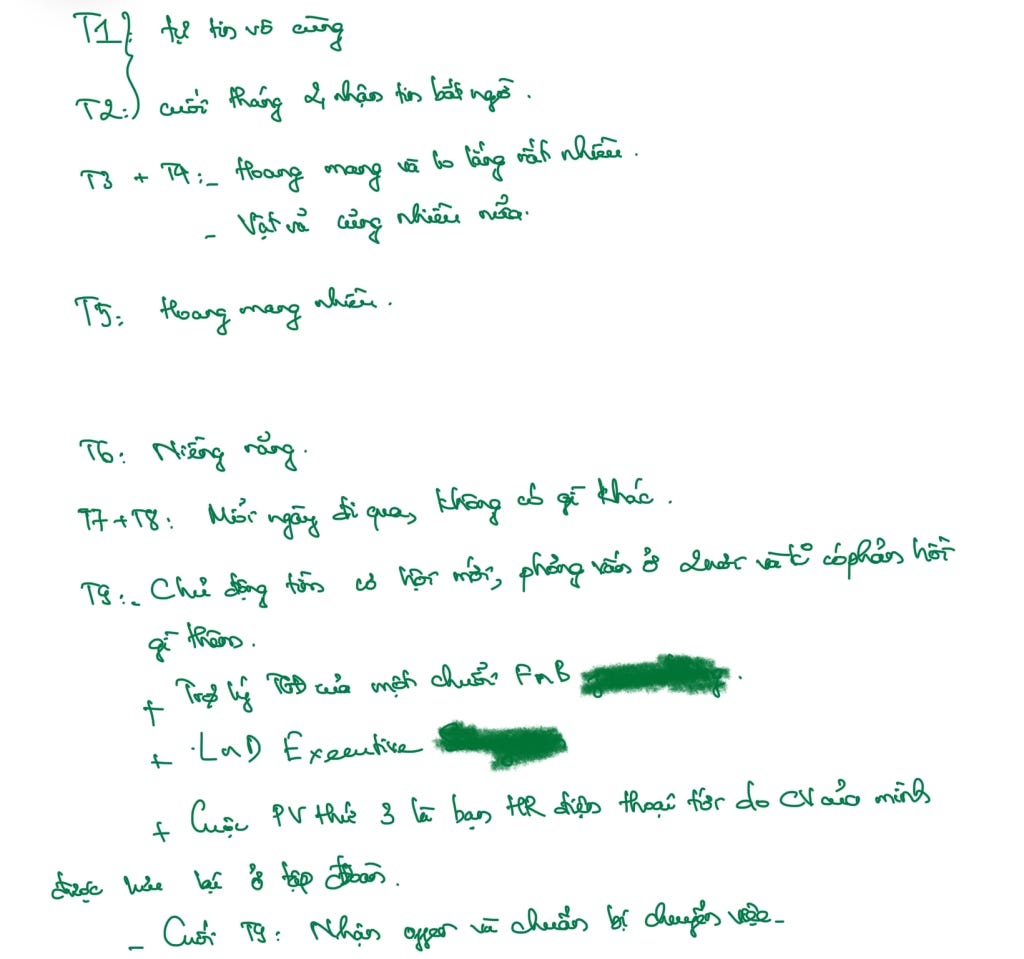 T1: tự tin vô cùng
T2: cuối tháng 2, nhận tin bất ngờ.
T3 + T4: - Hoang mang và lo lắng rất nhiều.
- Vất vả cũng nhiều nữa.
T5: Hoang mang nhiều.
T6: Niềng răng.
T7+T8: Mỗi ngày đi qua, không có gì khác.
T9: - Chủ động tìm cơ hội mới, phỏng vấn ở 2 nơi và k có phản hồi
gì thêm.
+ Trợ lý TGĐ của một chuỗi FnB
+ LnD Executive
+ Cuộc PV thứ 3 là bạn HR điện thoại tới do CV của mình
được lưu lại ở tập đoàn.
- Cuối T9: Nhận offer và chuẩn bị chuyển việc